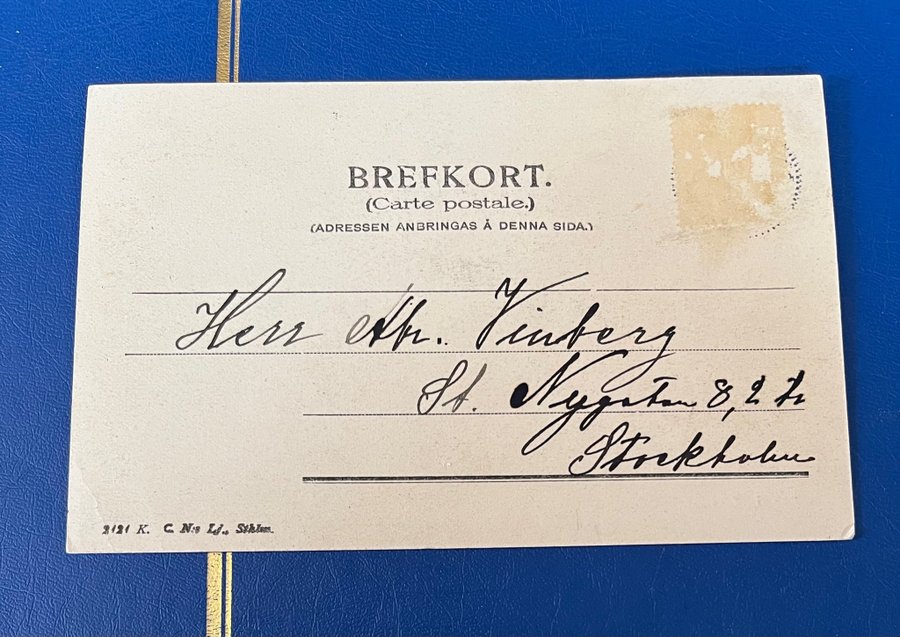 BREFKORT.
(Carte postale.)
(ADRESSEN ANBRINGAS Å DENNA SIDA.)
Herr Abr. Vinberg
St. Nygatan 8, 2 tr
Stockholm
2121 K. C. N:s Lj., Sthlm.